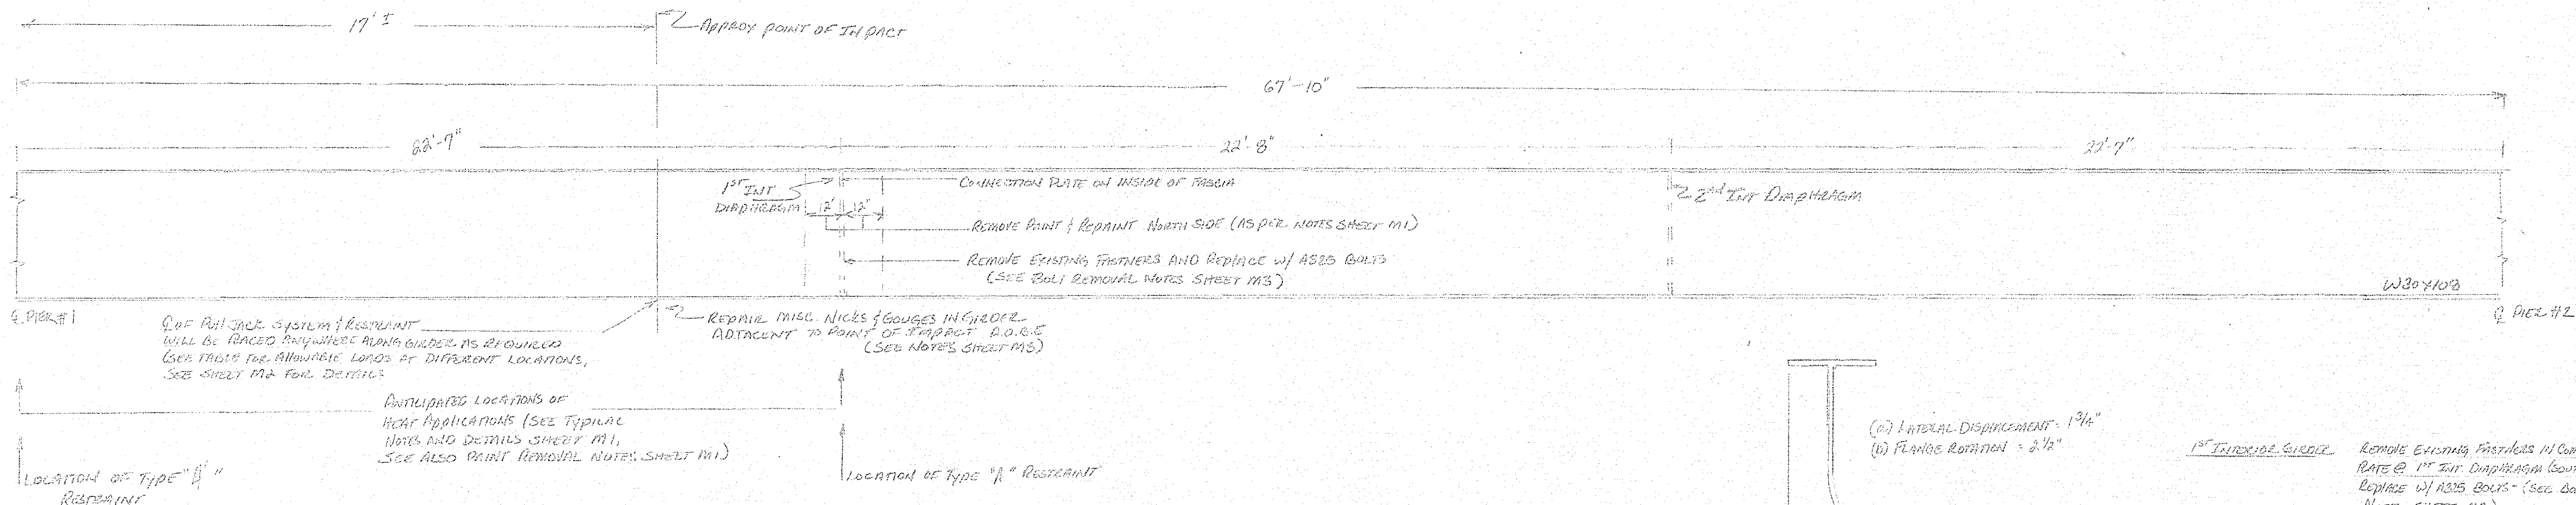 17' ±
APPROX POINT OF IMPACT
67'-10"
22'-7"
22'-8"
22'-7"
1ST INT
DIAPHRAGM
12"
12"
CONNECTION PLATE ON INSIDE OF FASCIA
2nd INT DIAPHRAGM
REMOVE PAINT & REPAINT NORTH SIDE (AS PER NOTES SHEET M1)
REMOVE EXISTING FASTNERS AND REPLACE W/ A325 BOLTS
(SEE BOLT REMOVAL NOTES SHEET M3)
W30X108
℄ PIER #1
℄ PIER #2
℄ OF PULL JACK SYSTEM & RESTRAINT
WILL BE PLACED ANYWHERE ALONG GIRDER AS REQUIRED
(SEE TABLE FOR ALLOWABLE LOADS AT DIFFERENT LOCATIONS,
SEE SHEET M2 FOR DETAILS
REPAIR MISC. NICKS & GOUGES IN GIRDER
ADJACENT TO POINT OF IMPACT A.O.B.E
(SEE NOTES SHEET M3)
ANTICIPATED LOCATIONS OF
HEAT APPLICATIONS (SEE TYPICAL
NOTES AND DETAILS SHEET M1,
SEE ALSO PAINT REMOVAL NOTES SHEET M1)
LOCATION OF TYPE "A"
RESTRAINT
LOCATION OF TYPE "A" RESTRAINT
(a) LATERAL DISPLACEMENT = 1 3/4"
(b) FLANGE ROTATION = 2 1/2"
1ST INTERIOR GIRDER
REMOVE EXISTING FASTNERS IN
PLATE @ 1ST INT. DIAPHRAGM
REPLACE W/ A325 BOLTS - (SEE